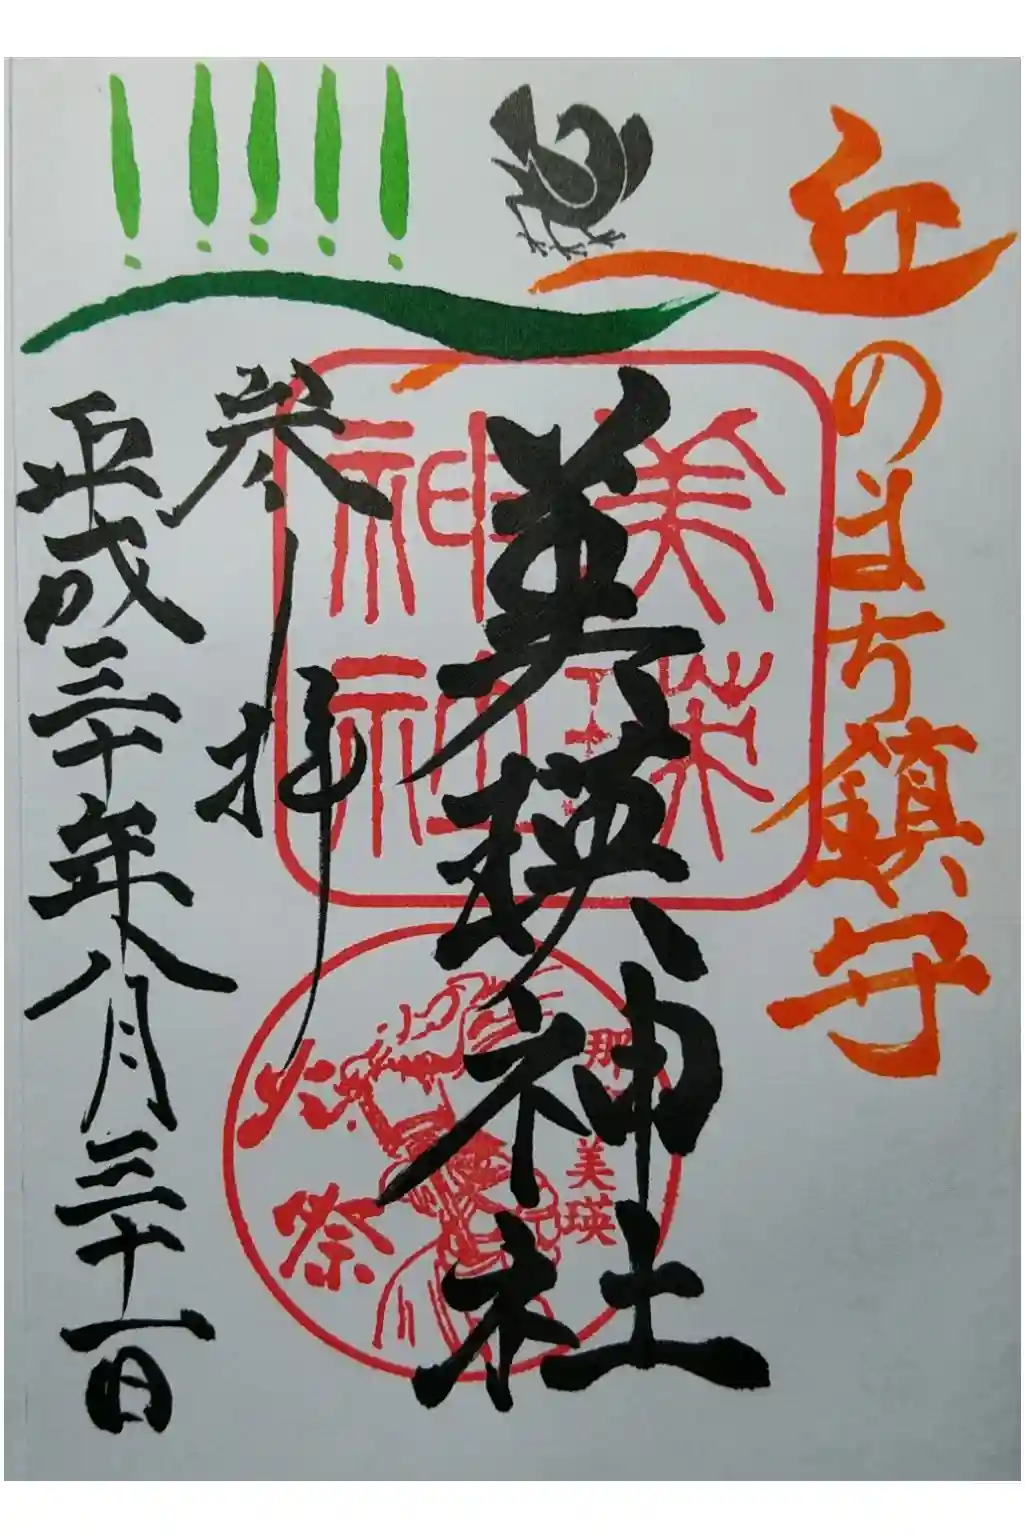 丘のまち鎮守
美瑛神社
参拝
平成三十年八月三十一日
美瑛
神社
那
美瑛
火祭